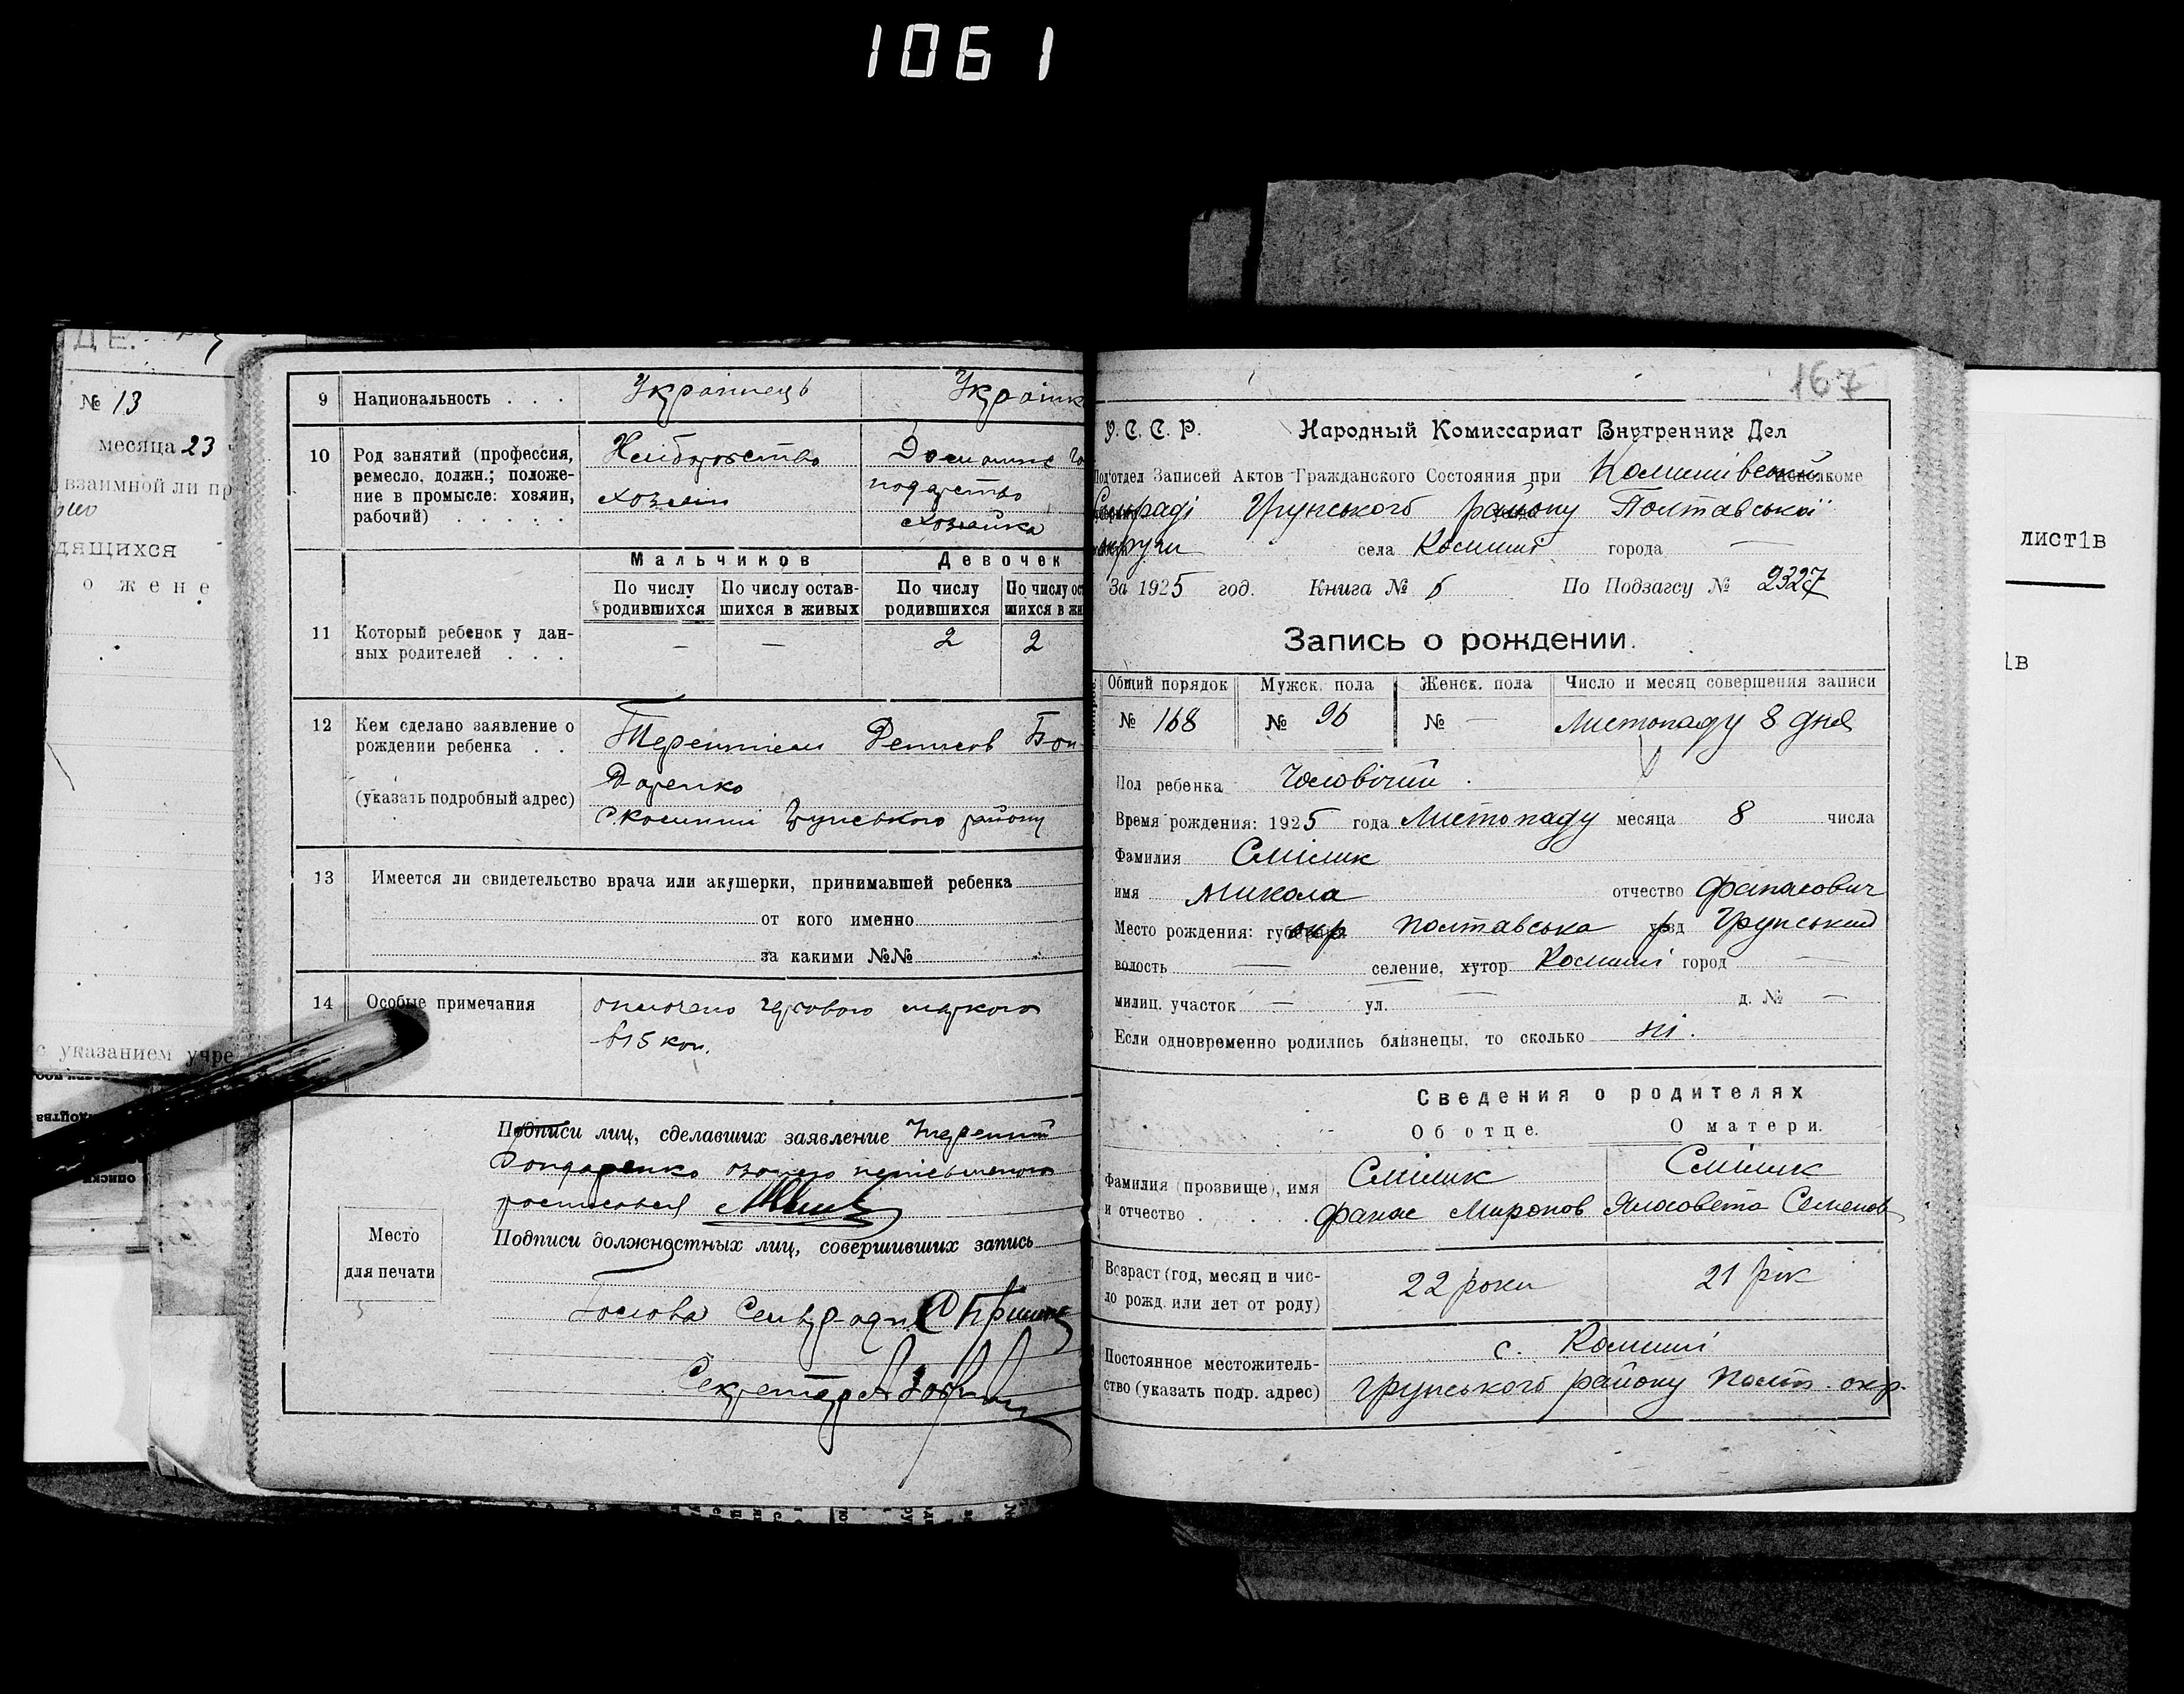 1061
№ 13
месяца 23
взаимной ли пр
дящихся
о жене
с указанием учре
9 Национальность . . . Українець Українк
10 Род занятий (профессия, ремесло, должн.; положение в промысле: хозяин, рабочий) . . . . .
Хліборобство
хозяін
Домашнє го
подарство
хозяйка
Мальчиков Девочек
По числу родившихся По числу оставшихся в живых По числу родившихся По числу ос шихся в жи
11 Который ребенок у данных родителей . . . — — 2 2
12 Кем сделано заявление о рождении ребенка . .
(указать подробный адрес)
Терентієм Денисов Бон-
даренко
с. Комиші Грунського району
13 Имеется ли свидетельство врача или акушерки, принимавшей ребенка
от кого именно
за какими №№
14 Особые примечания
оплочено гербового
15 коп.
Подписи лиц, сделавших заявление Терентій
Бондаренко
росписався
Подписи должностных лиц, совершивших запись
Место
для печати
Голова Сельради
Секретар
167
У. С. С. Р. Народный Комиссариат Внутренних Дел
Подотдел Записей Актов Гражданского Состояния при Комишівській исполкоме
Сільраді Грунського району Полтавської
округи села Комиші города —
За 1925 год. Книга № 6 По Подзагсу № 2327
Запись о рождении.
Общий порядок Мужск. пола Женск. пола Число и месяц совершения записи
№ 168 № 96 № — Листопаду 8 дня
Пол ребенка Чоловічий
Время рождения: 1925 года Листопаду месяца 8 числа
Фамилия Смілик
имя Микола отчество Фанасович
Место рождения: губерния окр Полтавська р уезд Грунський
волость — селение, хутор Комиші город —
милиц. участок — ул. — д. № —
Если одновременно родились близнецы, то сколько ні.
Сведения о родителях
Об отце. О матери.
Фамилия (прозвище), имя и отчество . . . .
Смілик
Фанас Миронов
Смілик
Ялисовета Семенов
Возраст (год, месяц и число рожд. или лет от роду) 22 роки 21 рік
Постоянное местожительство (указать подр. адрес)
с. Комиші
Грунського району Полт. окр.
лист1в
1в